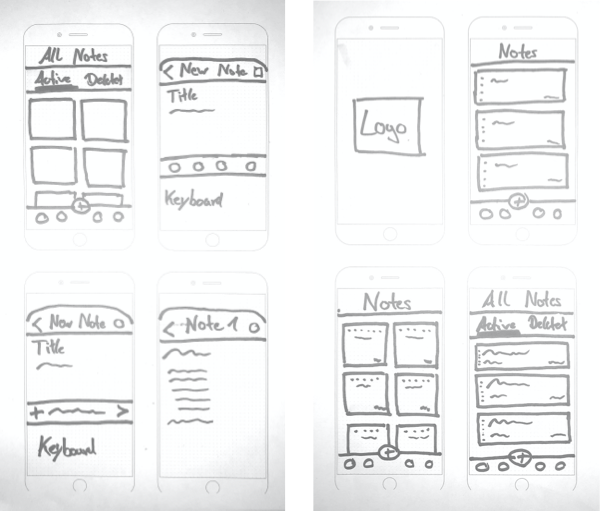 All Notes
Active Deletet
< New Note
Title
Keyboard
+
< New Note
Title
+ >
Keyboard
< Note 1
Logo
Notes
+
Notes
+
All Notes
Active Deletet
+